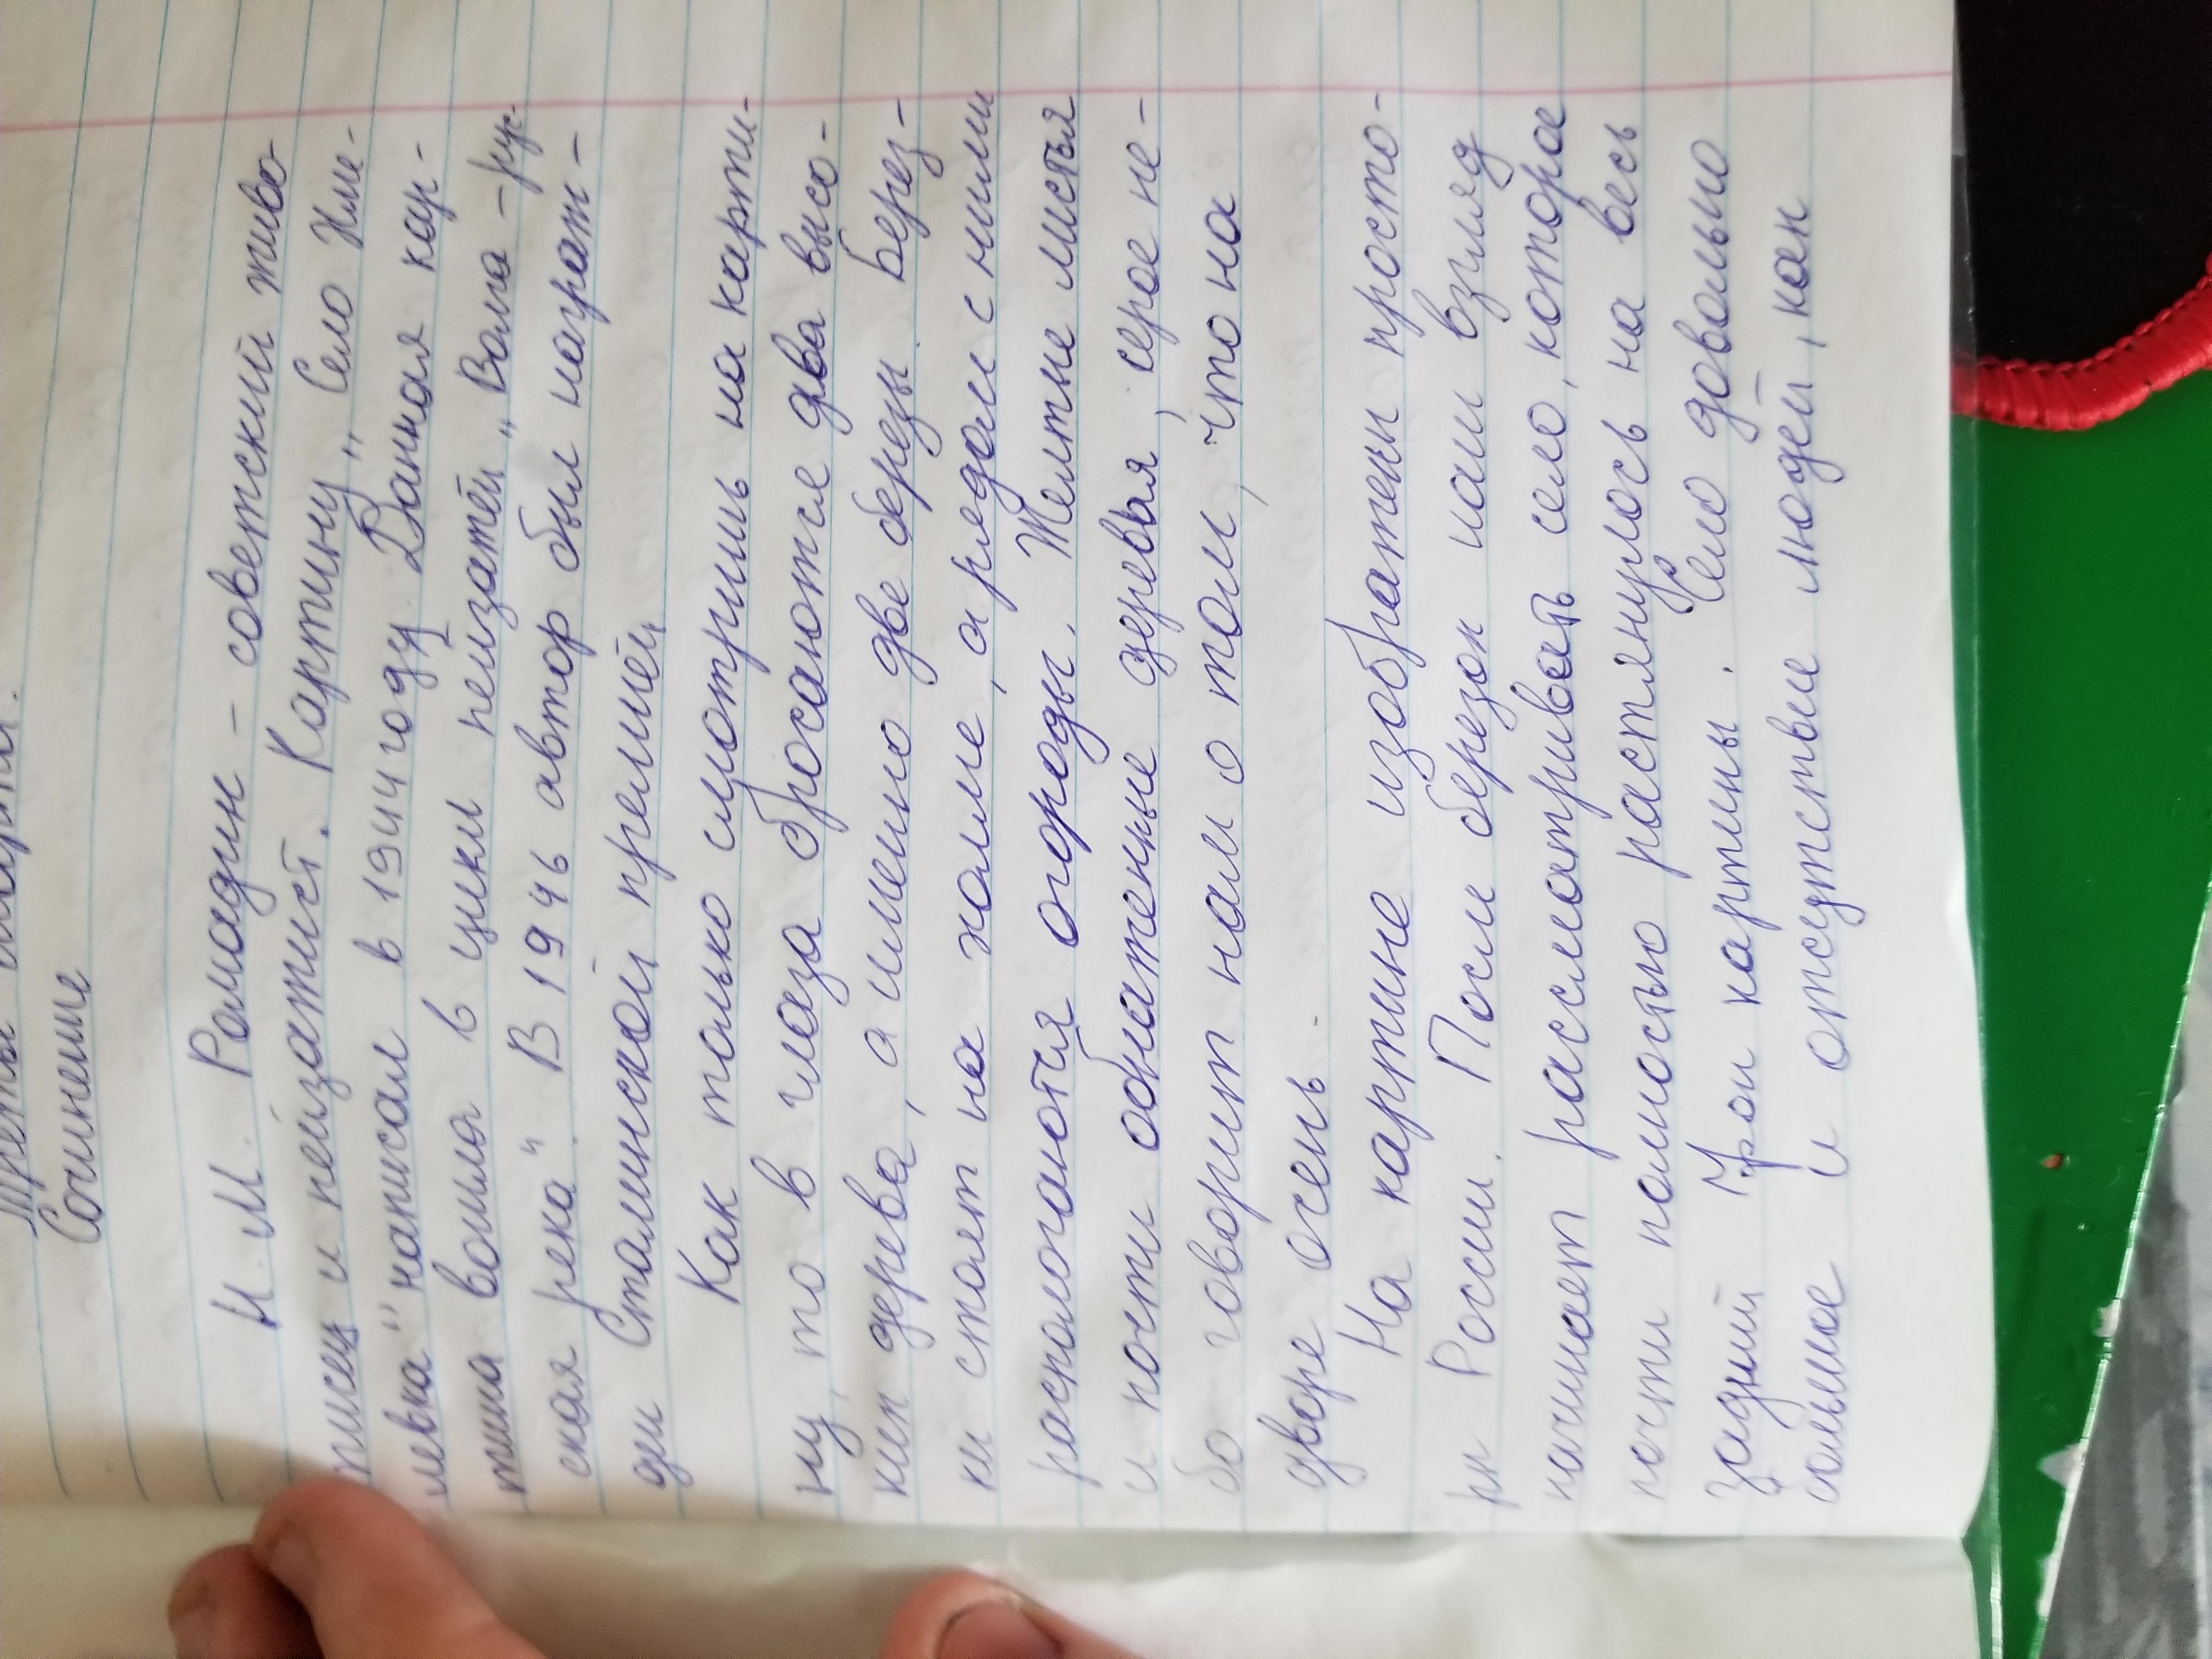 Третье марта.
Сочинение
Н. М. Ромадин – советский живо-
писец и пейзажист. Картину „Село Хме-
лёвка" написал в 1944 году. Данная кар-
тина вошла в цикл пейзажей „Волга – рус-
ская река". В 1946 автор был награж-
дён Сталинской премией.
Как только смотришь на карти-
ну, то в глаза бросаются два высо-
ких дерева, а именно две березы. Берез-
ки стоят на холме, а рядом с ними
распологаются огороды. Желтые листья
и почти обнаженные деревья, серое не-
бо говорит нам о том, что на
дворе осень.
На картине изображен просто-
р России. После березок наш взгляд
начинает рассматривать село, которое
почти полностью растянулось на весь
задний фон картины. Село довольно
большое и отсутствие людей, как